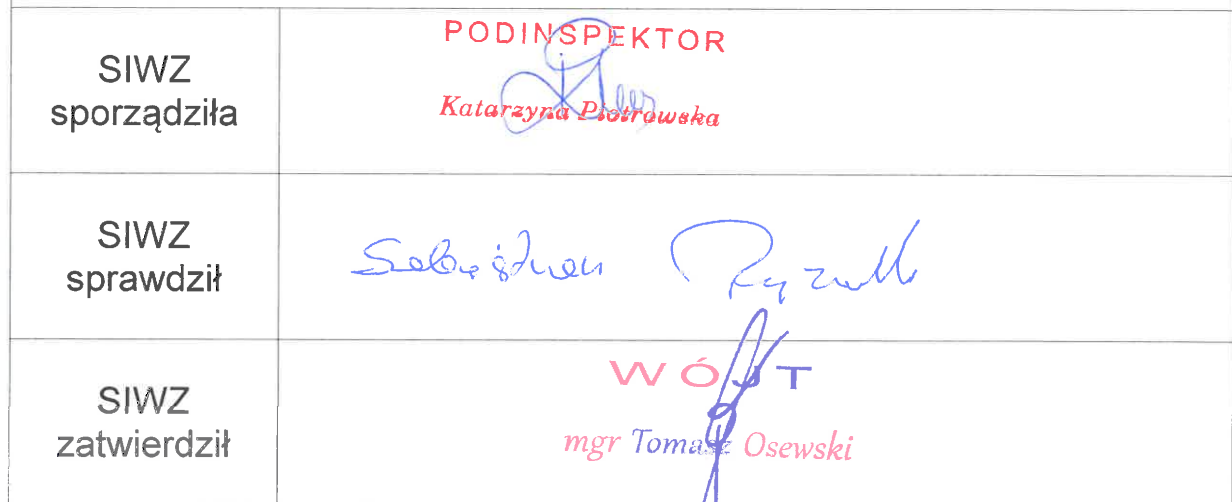 SIWZ
sporządziła
PODINSPEKTOR
Katarzyna Piotrowska
SIWZ
sprawdził
Sebastian
SIWZ
zatwierdził
WÓJT
mgr Tomasz Osewski